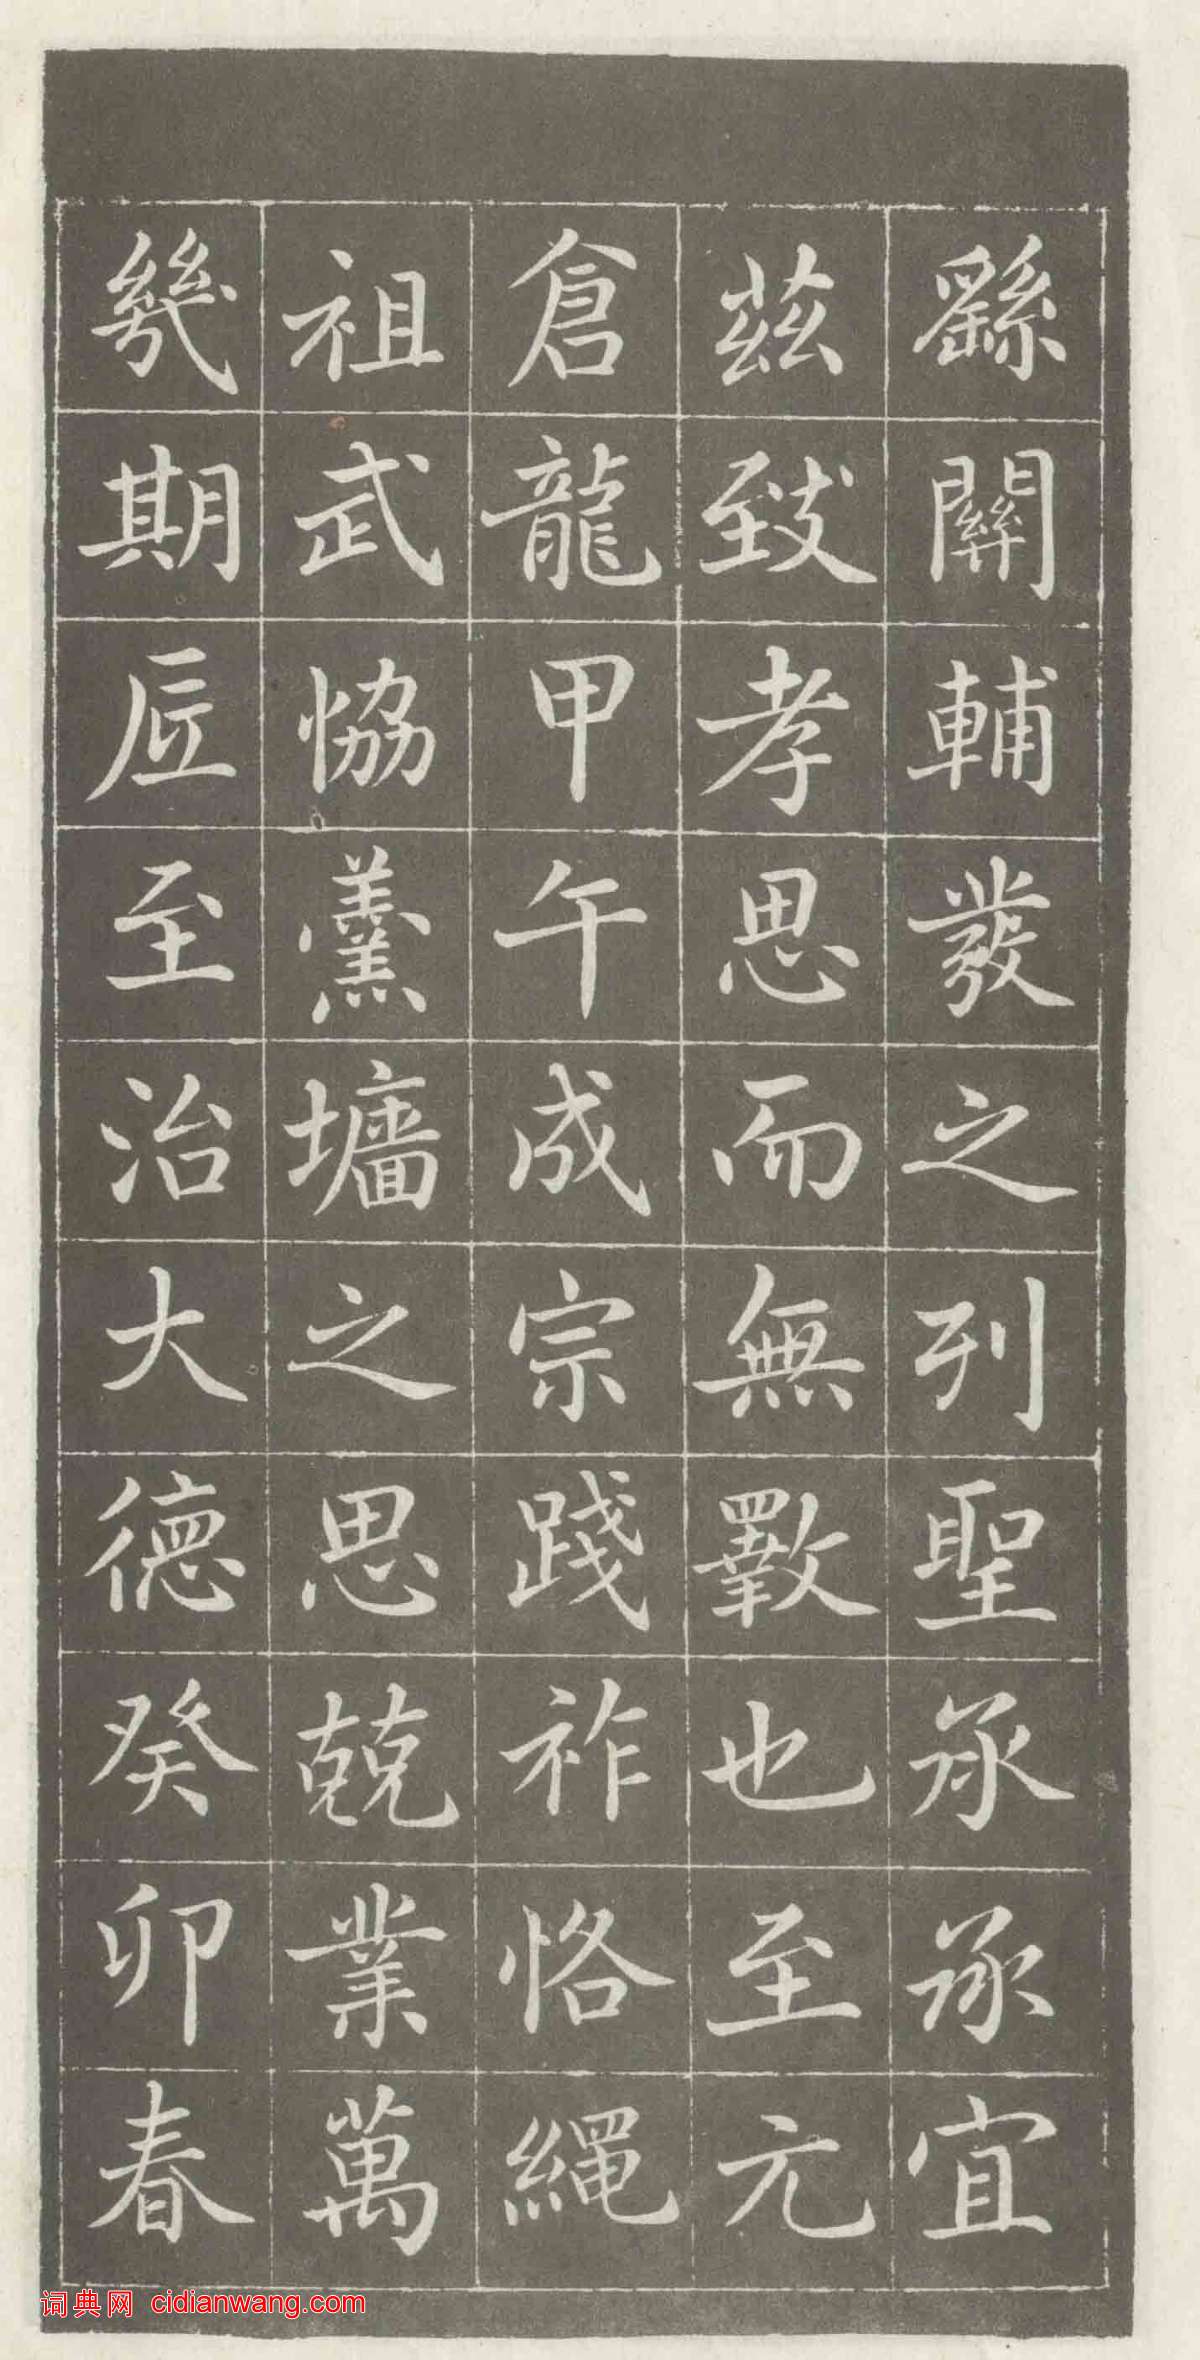 繇關輔發之列聖承承宜
茲致孝思而無斁也至元
倉龍甲午成宗踐祚恪繩
祖武恊羹墻之思兢業萬
幾期底至治大德癸卯春
词典网 cidianwang.com